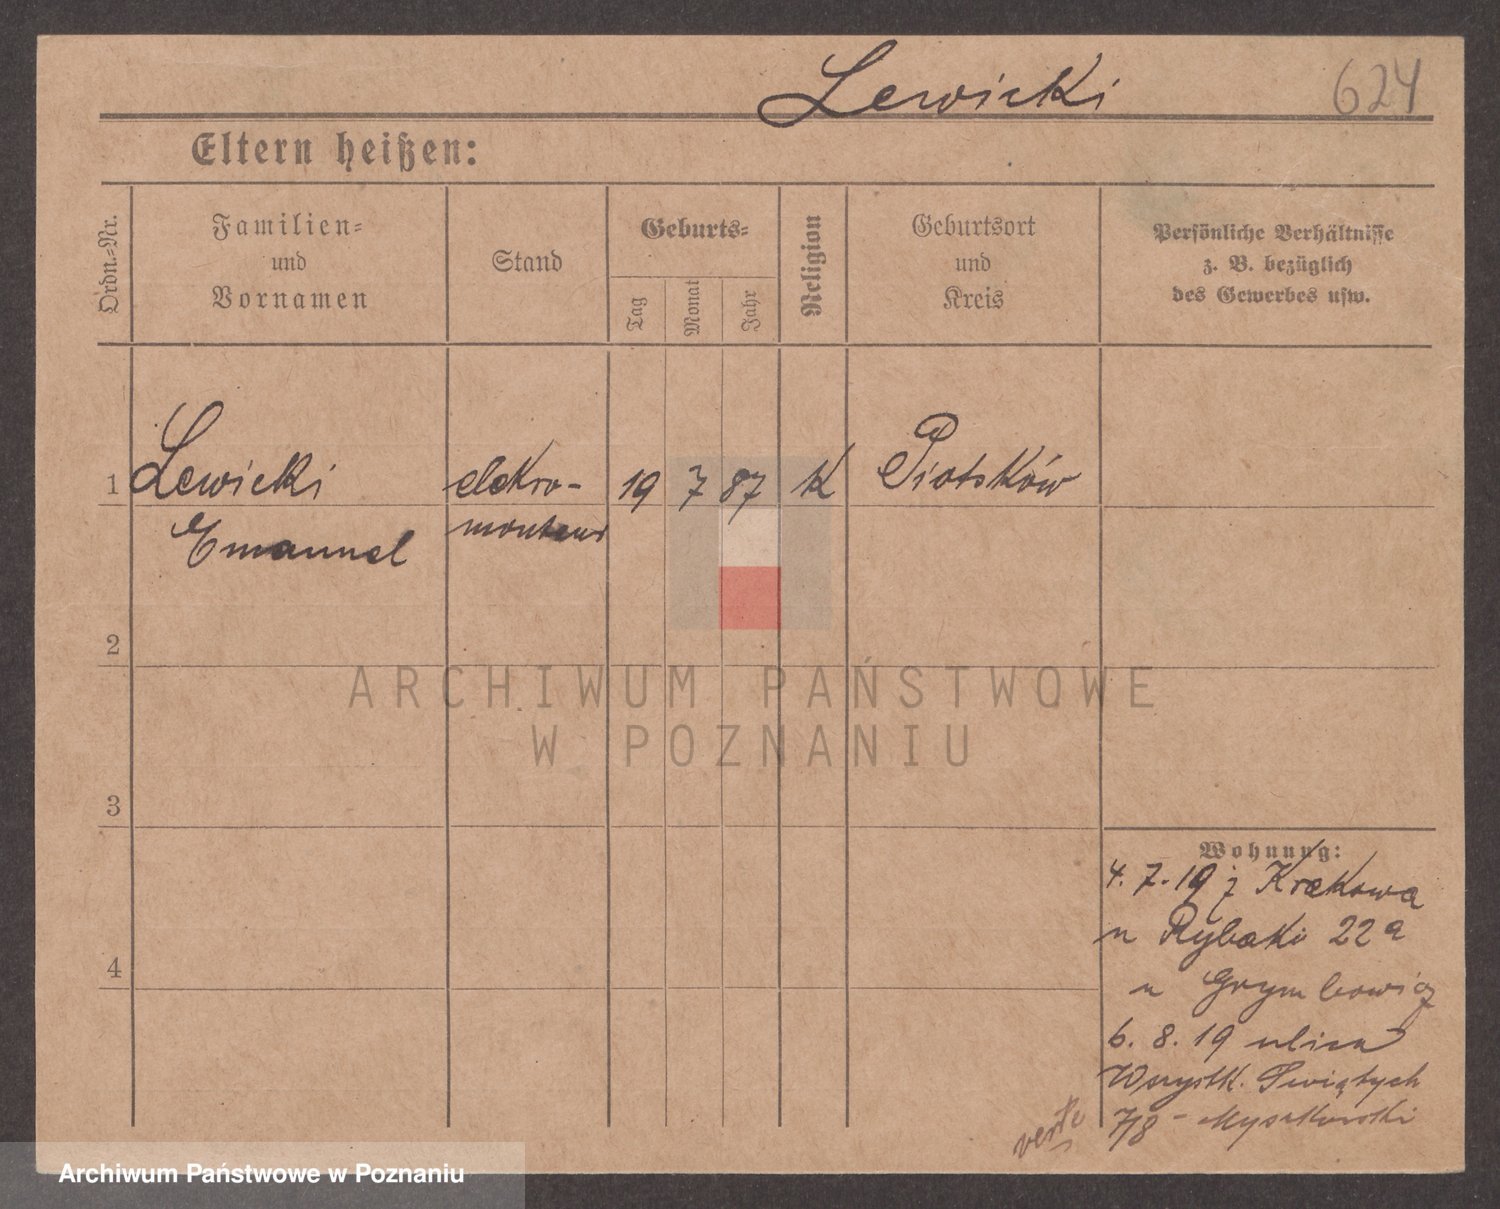 Lewicki 624
Eltern heißen:
Ordn.-Nr.
Familien-
und
Vornamen
Stand
Geburts-
Tag
Monat
Jahr
Religion
Geburtsort
und
Kreis
Persönliche Verhältnisse
z. B. bezüglich
des Gewerbes usw.
1 Lewicki elektro- 19 7 87 K Piotrków
Emanuel monteur
2
3
4
Wohnung:
4. 7. 19 z Krakowa
n Rybaki 22a
u Grymbowicz
6. 8. 19 ulica
Wszystk. Świątych
7/8 - Myszkowski
verte
ARCHIWUM PAŃSTWOWE
W POZNANIU
Archiwum Państwowe w Poznaniu